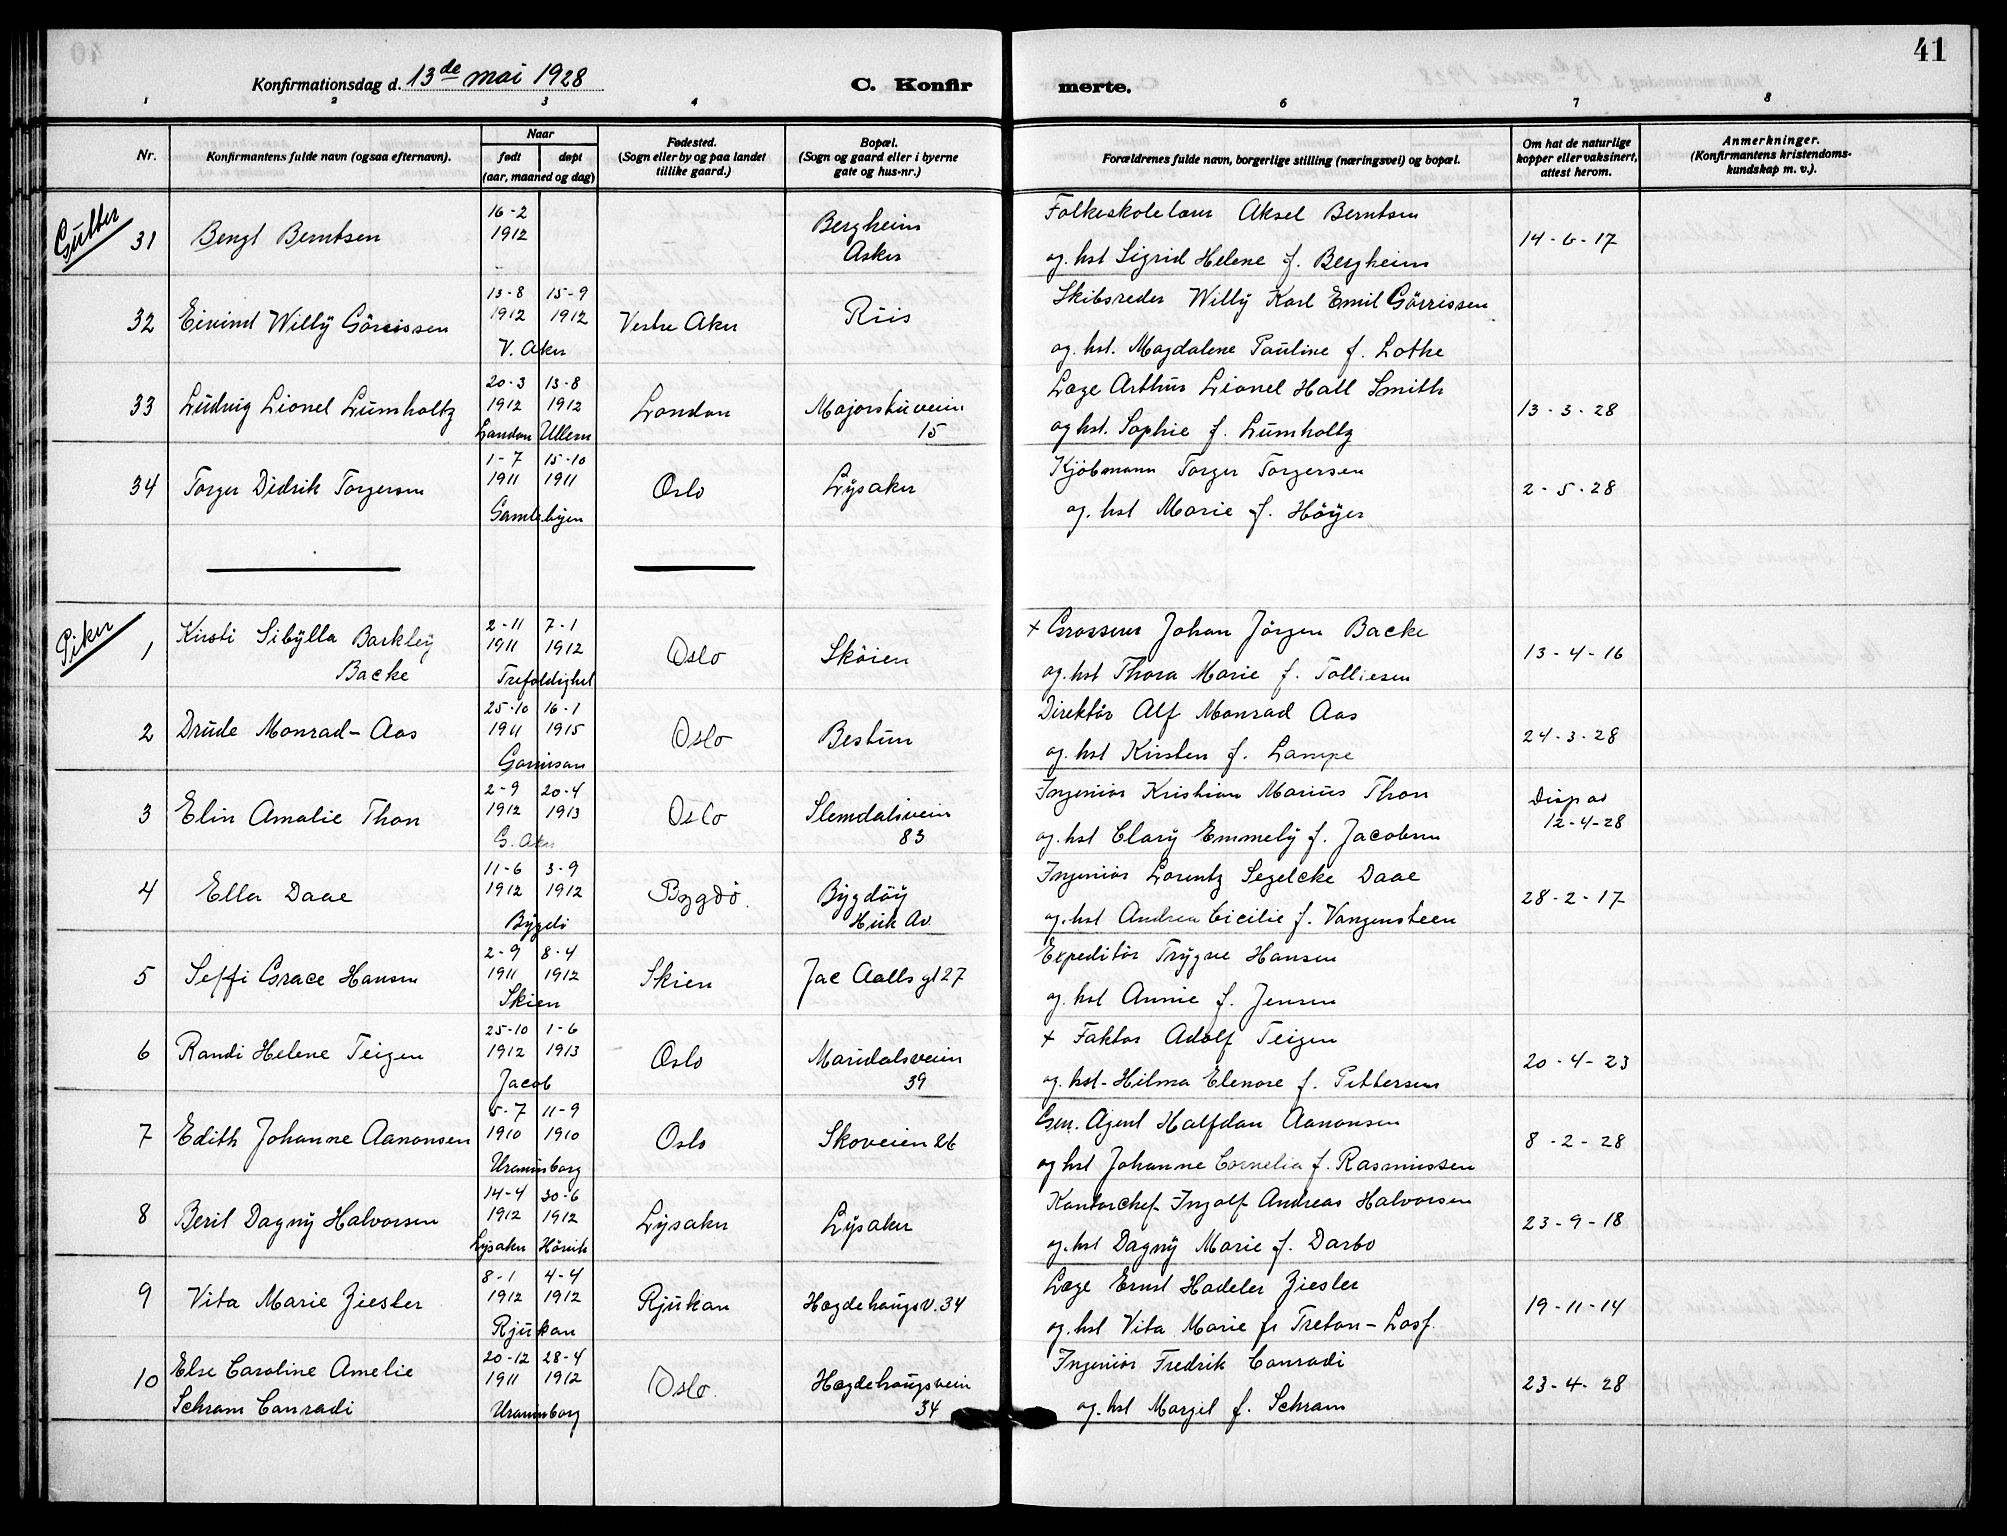 41
Konfirmationsdag d. 13de mai 1928
C. Konfir
merte.
1 2 3 4 6 7 8
Nr.
Konfirmantens fulde navn (ogsaa efternavn).
Naar
født
døpt
(aar, maaned og dag)
Fødested.
(Sogn eller by og paa landet
tillike gaard.)
Bopæl.
(Sogn og gaard eller i byerne
gate og hus-nr.)
Forældrenes fulde navn, borgerlige stilling (næringsvei) og bopæl.
Om hat de naturlige
kopper eller vaksinert,
attest herom.
Anmerkninger.
(Konfirmantens kristendoms-
kundskap m. v.).
Gutter
31 Bengt Berntsen
16-2
1912
Bergheim
Asker
Folkeskolelærer Aksel Berntsen
og hst Sigrid Helene f. Bergheim
14-6-17
32 Eivind Willy Görrissen
13-8 15-9
1912 1912
V. Aker
Vestre Aker
Riis
Skibsreder Willy Karl Emil Görrissen
og. hst. Magdalene Pauline f. Lothe
33 Ludvig Lionel Lumholtz
20-3 13-8
1912 1912
London Ullern
London
Majorstuveien
15
Læge Arthur Lionel Hall Smith
og hst. Sophie f. Lumholtz
13-3-28
34 Torger Didrik Torgersen
1-7 15-10
1911 1911
Gamlebyen
Oslo
Lysaker
Kjöbmann Torger Torgersen
og. hst Marie f. Höyer
2-5-28
Piker
1 Kirsti Sibylla Barkley
Backe
2-11 7-1
1911 1912
Trefoldighet
Oslo
Sköien
+ Grosserer Johan Jörgen Backe
og. hst Thora Marie f. Tolliesen
13-4-16
2 Drude Monrad-Aas
25-10 16-1
1911 1915
Garnison
Oslo
Bestum
Direktör Alf Monrad Aas
og. hst Kirsten f. Lampe
24-3-28
3 Elin Amalie Thon
2-9 20-4
1912 1913
G. Aker
Oslo
Slemdalsveien
83
Ingeniör Kristian Marius Thon
og. hst Clary Emmely f. Jacobsen
Disp av
12-4-28
4 Ella Daae
11-6 3-9
1912 1912
Bygdö
Bygdö.
Bygdöy
Huk Av.
Ingeniör Lorentz Segelcke Daae
og. hst Andrea Cicilie f. Vangensteen
28-2-17
5 Seffi Grace Hansen
2-9 8-4
1911 1912
Skien
Skien
Jac Aalls gt 27
Expeditör Trygve Hansen
og. hst Annie f. Jensen
6 Randi Helene Teigen
25-10 1-6
1912 1913
Jacob
Oslo
Maridalsveien
39
+ Faktor Adolf Teigen
og. hst. Hilma Elenore f. Pettersen
20-4-23
7 Edith Johanne Aanonsen
5-7 11-9
1910 1910
Uranienborg
Oslo
Skoveien 26
Gen. Agent Halfdan Aanonsen
og hst Johanne Cornelia f. Rasmussen
8-2-28
8 Beril Dagny Halvorsen
14-4 30-6
1912 1912
Lysaker Hövik
Lysaker
Lysaker
Kontorchef Ingolf Andreas Halvorsen
og. hst Dagny Marie f. Darbo
23-9-18
9 Vita Marie Ziesler
8-1 4-4
1912 1912
Rjukan
Rjukan
Hægdehaugsv. 34
Læge Ernst Hadeler Ziesler
og. hst Vita Marie f.
19-11-14
10 Else Caroline Amelie
Schram Conradi
20-12 28-4
1911 1912
Uranienborg
Oslo.
Hægdehaugsvein
34
Ingeniör Fredrik Conradi
og. hst Margit f. Schram
23-4-28